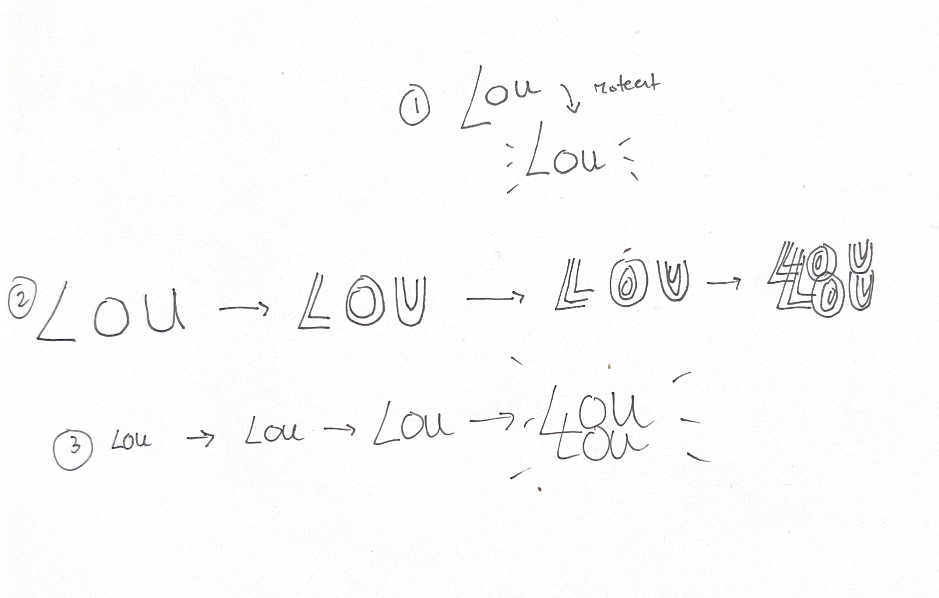 ① Lou
Lou
② LOU → LOU → LOU → LOU LOU
③ Lou → Lou → Lou → Lou Lou